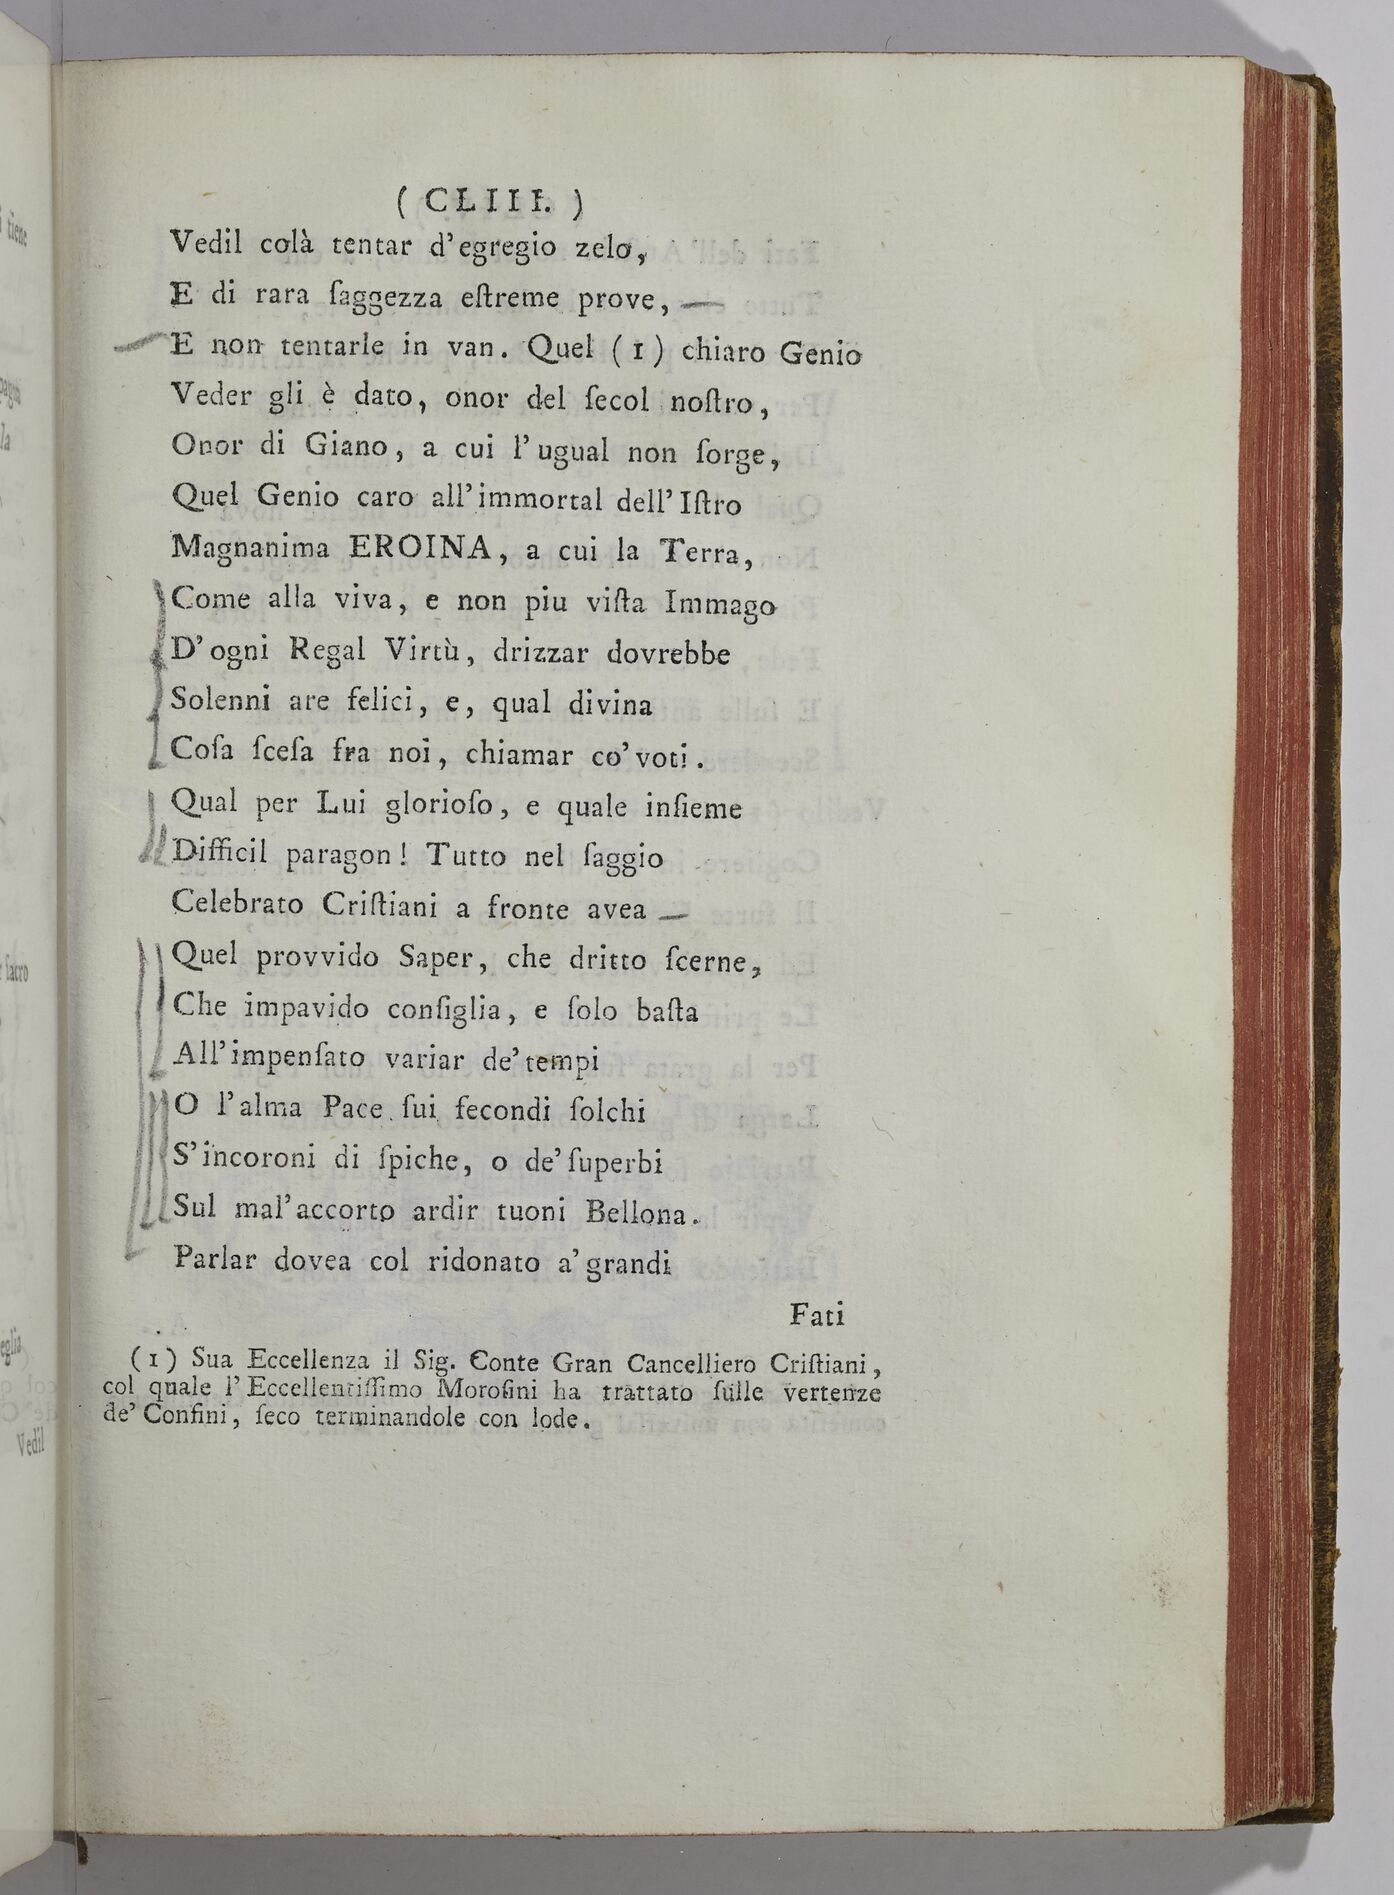 ( CLIII. )
Vedil colà tentar d'egregio zelo,
E di rara ſaggezza eſtreme prove,
E non tentarle in van. Quel (1) chiaro Genio
Veder gli è dato, onor del ſecol noſtro,
Onor di Giano, a cui l'ugual non ſorge,
Quel Genio caro all'immortal dell'Iſtro
Magnanima EROINA, a cui la Terra,
Come alla viva, e non piu viſta Immago
D'ogni Regal Virtù, drizzar dovrebbe
Solenni are felici, e, qual divina
Coſa ſceſa fra noi, chiamar co'voti.
Qual per Lui glorioſo, e quale inſieme
Difficil paragon! Tutto nel ſaggio
Celebrato Criſtiani a fronte avea
Quel provvido Saper, che dritto ſcerne,
Che impavido conſiglia, e ſolo baſta
All'impenſato variar de'tempi
O l'alma Pace ſui fecondi ſolchi
S'incoroni di ſpiche, o de'ſuperbi
Sul mal'accorto ardir tuoni Bellona.
Parlar dovea col ridonato a'grandi
Fati
(1) Sua Eccellenza il Sig. Conte Gran Cancelliero Criſtiani,
col quale l'Eccellentiſſimo Moroſini ha trattato ſulle vertenze
de'Confini, ſeco terminandole con lode.
tiene
la
ſacro
eglia
Vedil